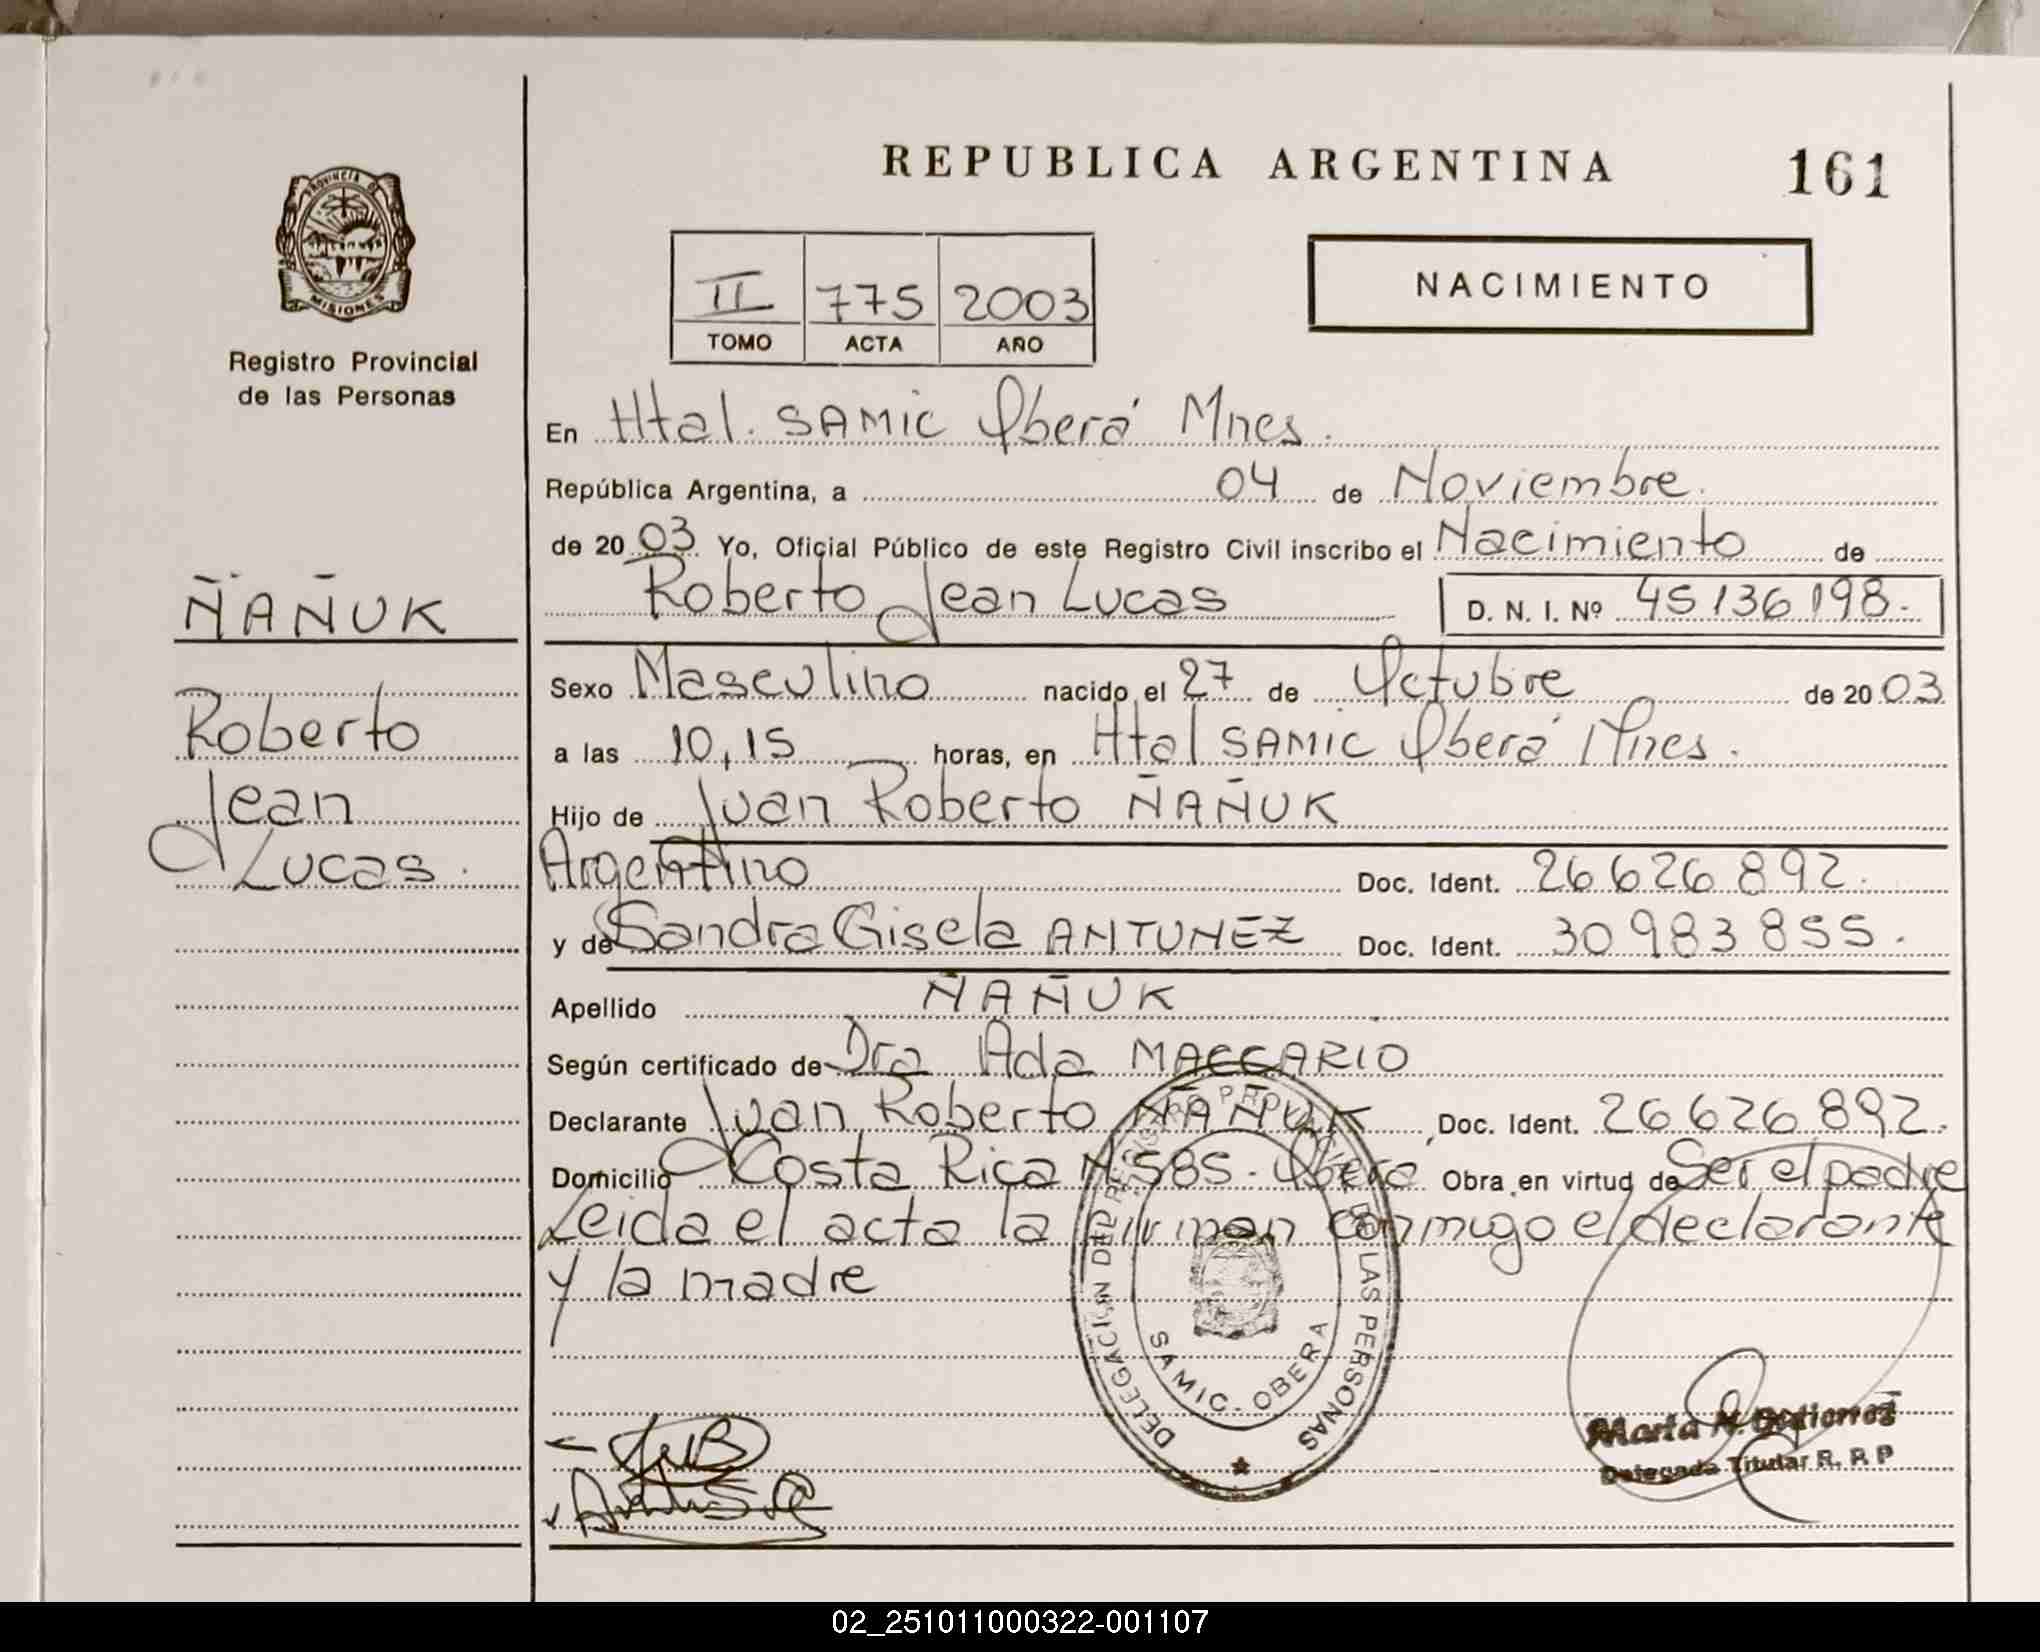 REPUBLICA ARGENTINA
161
PROVINCIA DE
MISIONES
Registro Provincial
de las Personas
II 775 2003
TOMO ACTA AÑO
NACIMIENTO
En Htal. SAMIC Oberá Mnes.
República Argentina, a 04 de Noviembre.
de 20 03 Yo, Oficial Público de este Registro Civil inscribo el Nacimiento de
Roberto Jean Lucas D. N. I. Nº 45136198.
ÑAÑUK
Roberto
Jean
Lucas.
Sexo Masculino nacido el 27 de Octubre de 20 03
a las 10,15 horas, en Htal SAMIC Oberá Mnes.
Hijo de Juan Roberto ÑAÑUK
Argentino Doc. Ident. 26 626 892.
y de Sandra Gisela ANTUNEZ Doc. Ident. 30 983 855.
Apellido ÑAÑUK
Según certificado de Dra Ada MACCARIO
Declarante Juan Roberto ÑAÑUK, Doc. Ident. 26 626 892.
Domicilio Costa Rica Nº 585. Oberá Obra en virtud de Ser el padre
Leida el acta la firman conmigo el declarante
y la madre
DELEGACION DEL REGISTRO PROVINCIAL DE LAS PERSONAS
SAMIC - OBERA
Marta N. Gutierrez
Delegada Titular R. P. P
02_251011000322-001107